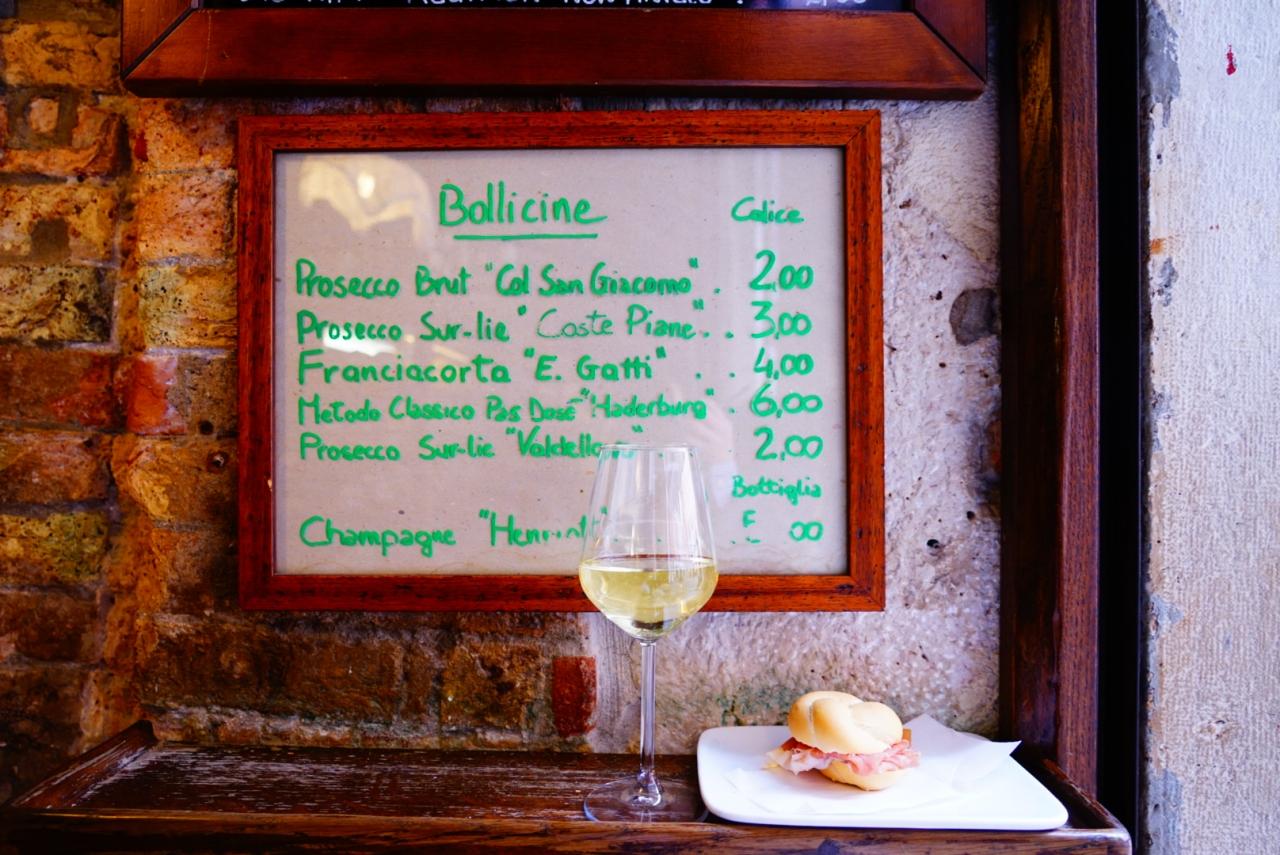 Bollicine Calice
Prosecco Brut "Col San Giacomo" . 2,00
Prosecco Sur-lie "Coste Piane" . . 3,00
Franciacorta "E. Gatti" . . 4,00
Metodo Classico Pas Dosé "Haderburg" . 6,00
Prosecco Sur-lie 2,00
Bottiglia
Champagne